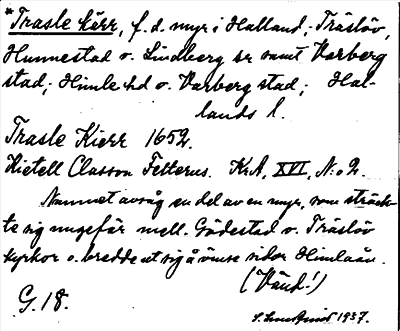 *Trasle kärr, f. d. myr i Halland, Träslöv,
Hunnestad o. Lindberg sr samt Varberg
stad; Himle hd o. Varberg stad; Hal-
lands l.
Trasle Kierr 1652.
Kietell Classon Felterus. KrA, XVI, No 2.
Namnet avsåg en del av en myr, som sträck-
te sig ungefär mell. Gödestad o. Träslöv
kyrkor o. bredde ut sig å ömse sidor Himleån.
(Vänd!)
G. 18.
S. Lundquist 1937.